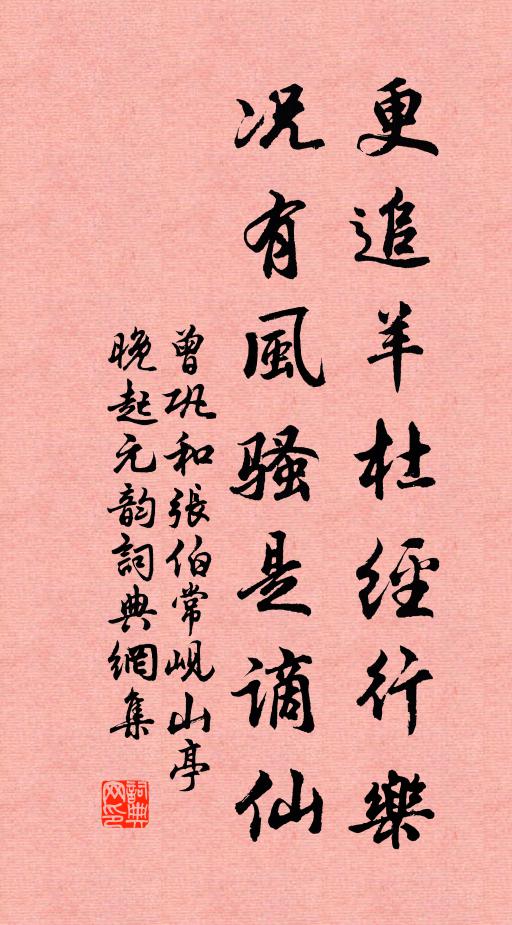 更追羊杜經行樂
况有風騷是謫仙
曾巩和張伯常峴山亭
晚起元韵詞典網集
詞典网印